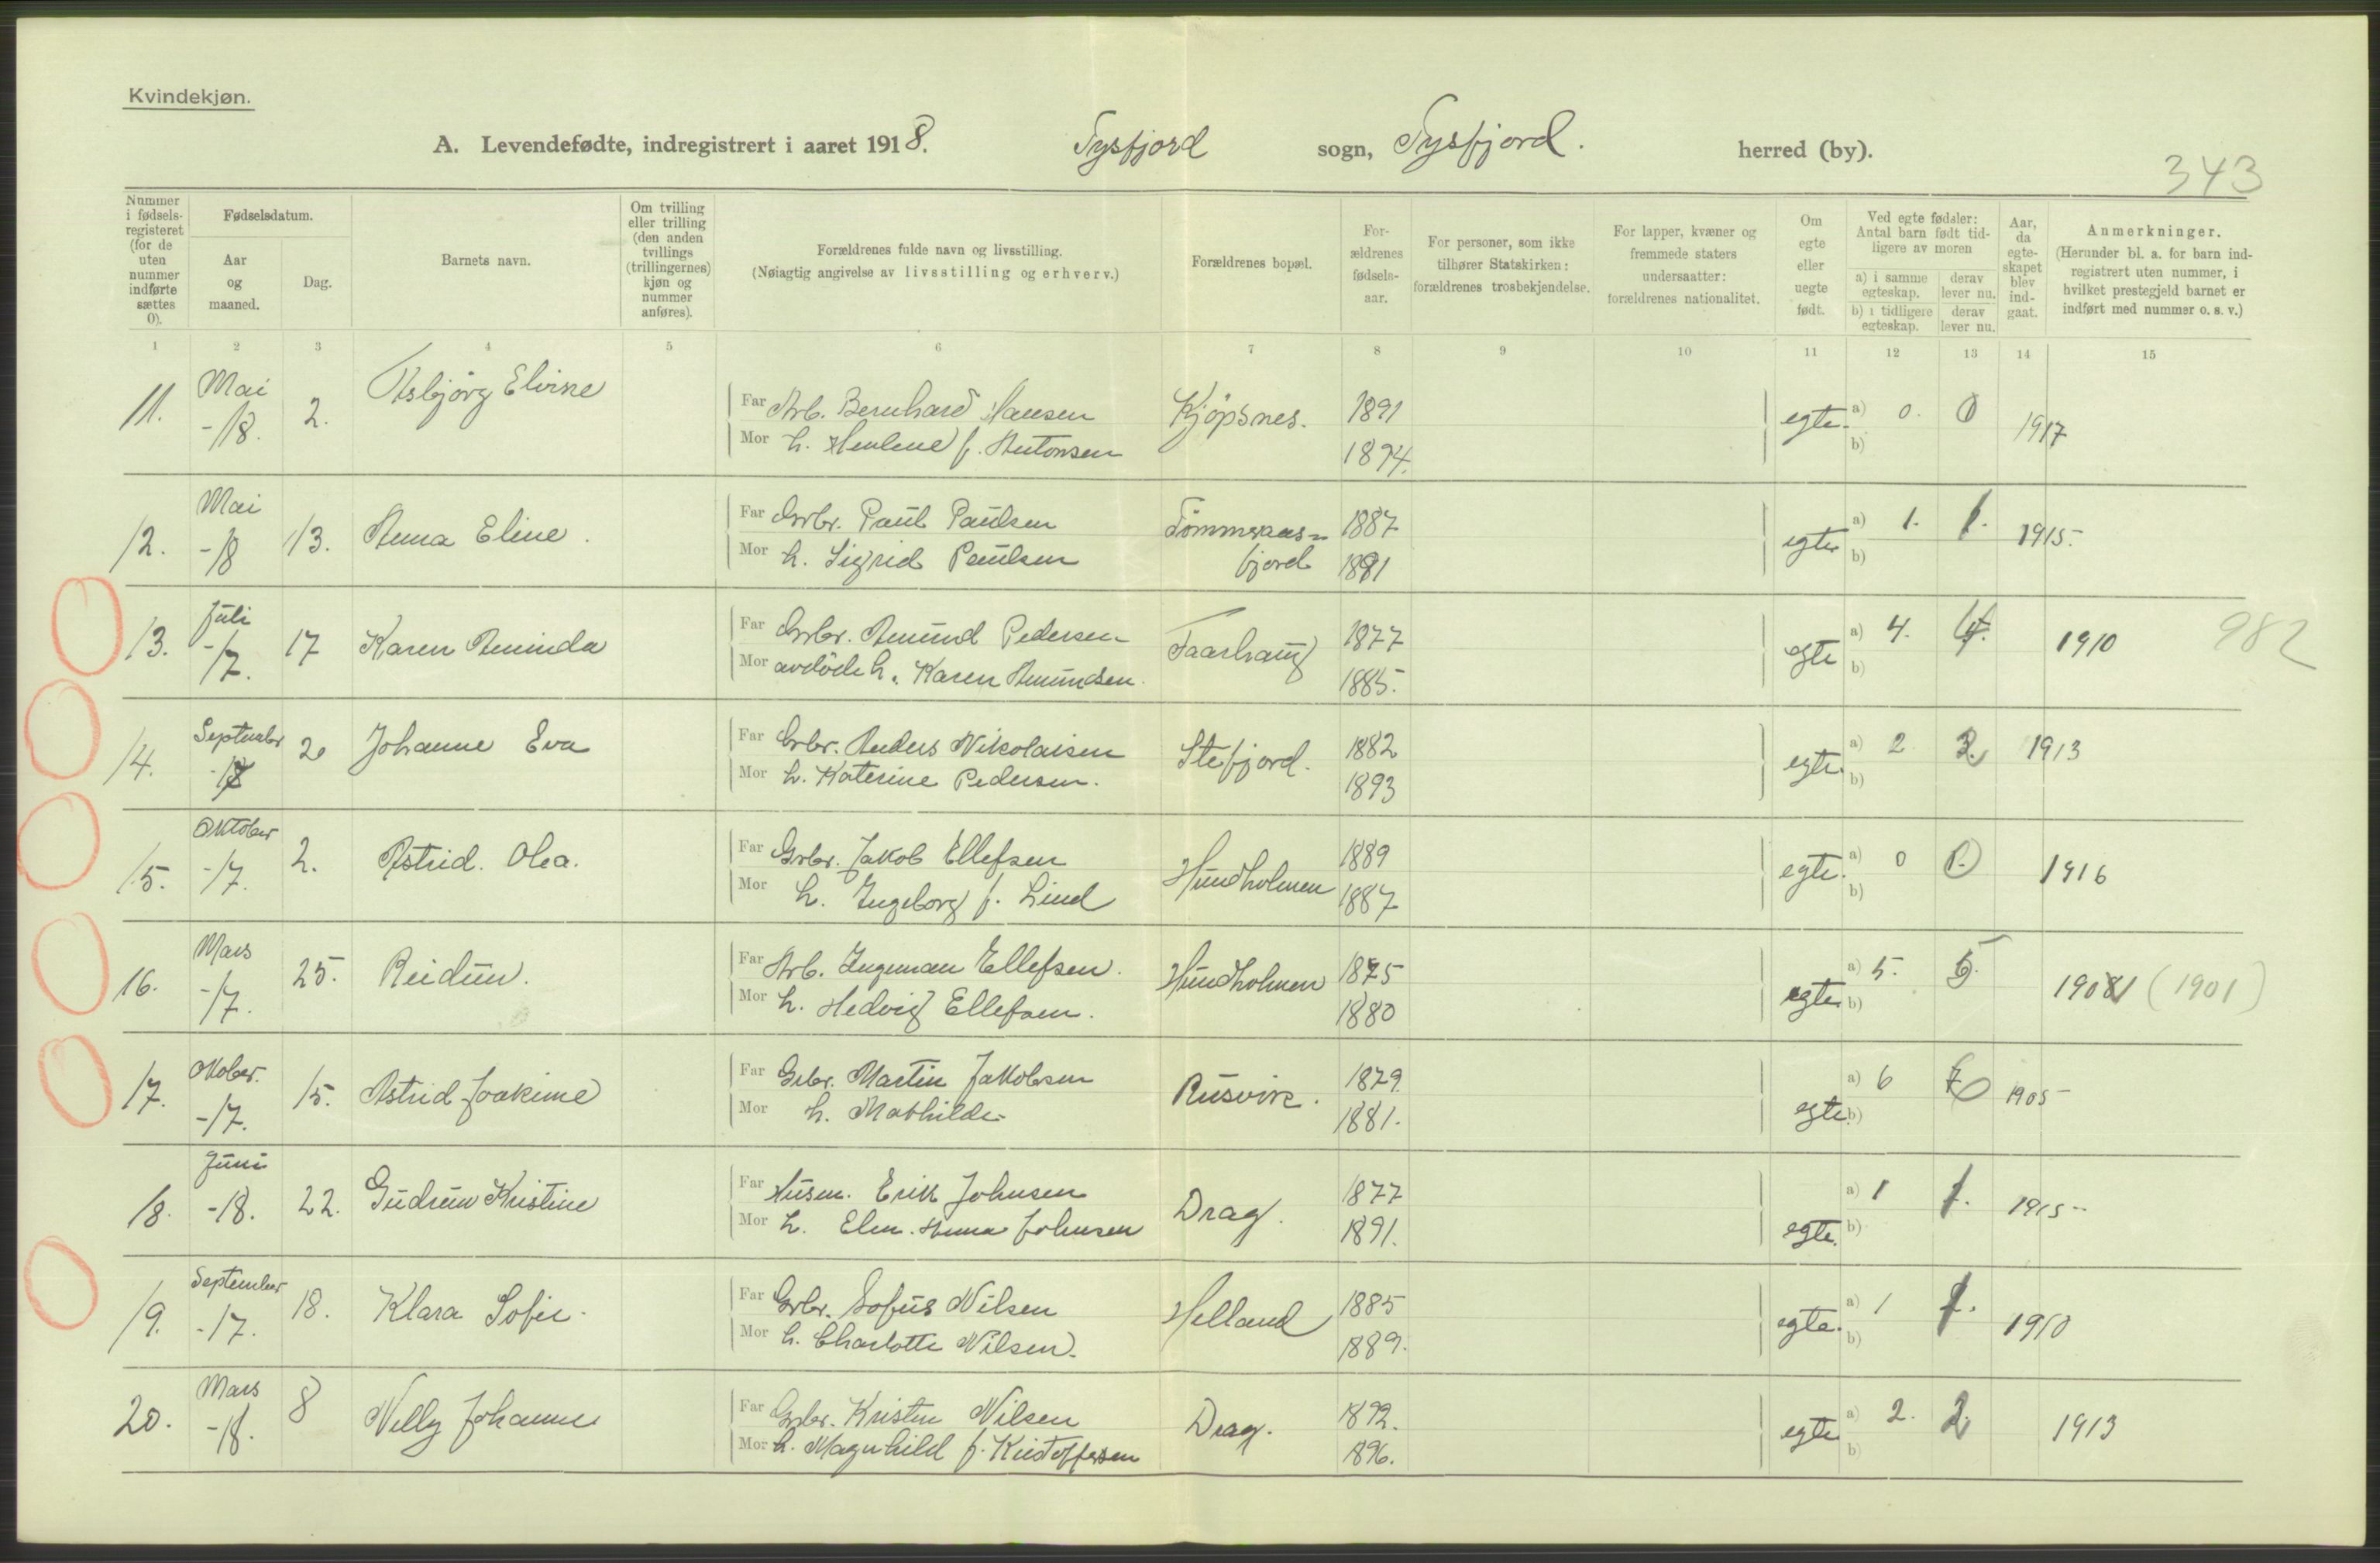 Kvindekjøn.
A. Levendefødte, indregistrert i aaret 1918. Tysfjord sogn, Tysfjord. herred (by).
343
Nummer i fødsels-registeret (for de uten nummer indførte sættes 0).
Fødselsdatum.
Aar og maaned.
Dag.
Barnets navn.
Om tvilling eller trilling (den anden tvillings (trillingernes) kjøn og nummer anføres).
Forældrenes fulde navn og livsstilling.
(Nøiagtig angivelse av livsstilling og erhverv.)
Forældrenes bopæl.
For-ældrenes fødsels-aar.
For personer, som ikke tilhører Statskirken: forældrenes trosbekjendelse.
For lapper, kvæner og fremmede staters undersaatter: forældrenes nationalitet.
Om egte eller uegte født.
Ved egte fødsler: Antal barn født tid-ligere av moren
a) i samme egteskap.
derav lever nu.
b) i tidligere egteskap.
derav lever nu.
Aar, da egte-skapet blev ind-gaat.
Anmerkninger.
(Herunder bl. a. for barn ind-registrert uten nummer, i hvilket prestegjeld barnet er indført med nummer o. s. v.)
1 2 3 4 5 6 7 8 9 10 11 12 13 14 15
11. Mai -18. 2. Asbjørg Elvine
Far Arb. Bernhard Hansen Kjøpsnes. 1891 egte. a) 0. 0 1917
Mor h. Henlene f. Antonsen 1894. b)
12. Mai -18 13. Anna Eline.
Far Grbr. Paul Paulsen Tømmeraas- 1887 egte a) 1. 1. 1915.
Mor h. Sigrid Paulsen fjord 1891 b)
13. Juli -17. 17 Karen Aminda
Far Grbr. Amund Pedersen Taarhaug 1877 egte a) 4. 4. 1910 982
Mor avdøde h. Karen Amundsen. 1885. b)
14. September -17 20 Johanne Eva
Far Grbr. Anders Nikolaisen Stefjord. 1882 egte. a) 2 2. 1913
Mor h. Katerine Pedersen. 1893 b)
15. Oktober -17. 2. Astrid. Olea.
Far Grbr. Jakob Ellefsen Hundholmen 1889 egte. a) 0 0 1916
Mor h. Ingeborg f. Lind 1887 b)
16. Mars -17. 25. Reidun.
Far Arb. Ingeman Ellefsen. Hundholmen 1875 egte a) 5. 5. 1901 (1901)
Mor h. Hedvig Ellefsen. 1880 b)
17. Oktober. -17. 15. Astrid Joakime
Far Grbr. Martin Jakobsen Rusvik. 1879. egte a) 6 1905
Mor h. Mathilde 1881. b)
18. Juni -18. 22. Gudrun Kristine
Far Husm. Erik Johnsen Drag. 1877 egte. a) 1 1. 1915
Mor h. Elen Anna Johnsen 1891. b)
19. September -17. 18. Klara Sofie.
Far Grbr. Sofus Nilsen Helland 1885 egte. a) 1 1. 1910
Mor h. Charlotte Nilsen. 1889. b)
20. Mars -18. 8 Nelly Johanne
Far Grbr. Kristen Nilsen Drag. 1892. egte a) 2. 2. 1913
Mor h. Magnhild f. Kristoffersen 1896. b)